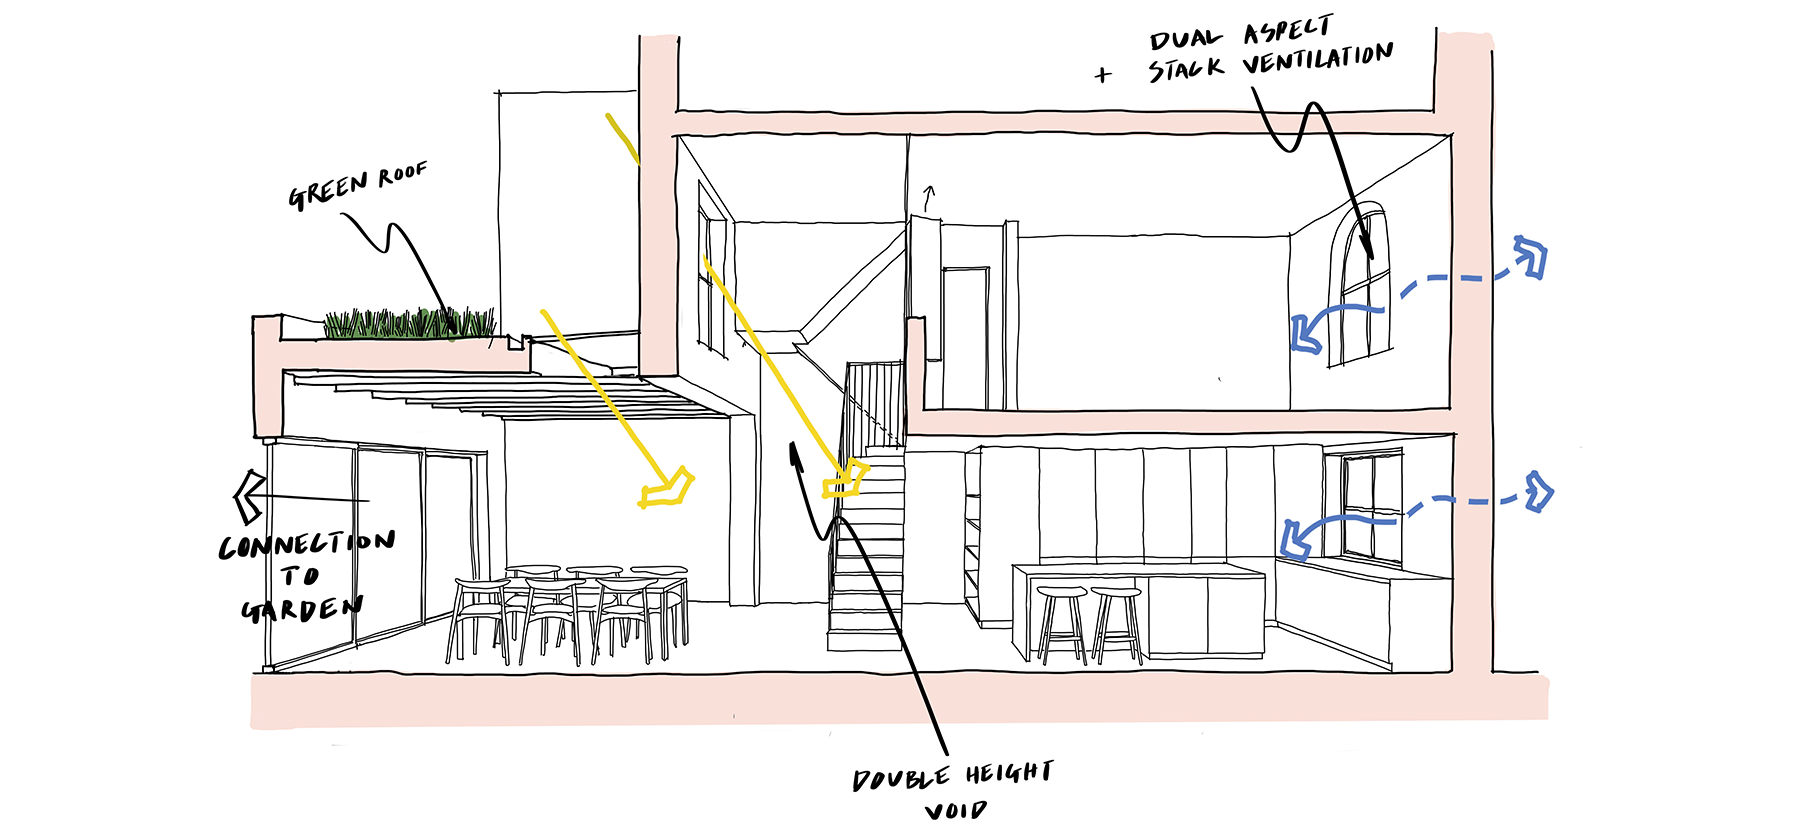 DUAL ASPECT
+ STACK VENTILATION
GREEN ROOF
CONNECTION
TO
GARDEN
DOUBLE HEIGHT
VOID